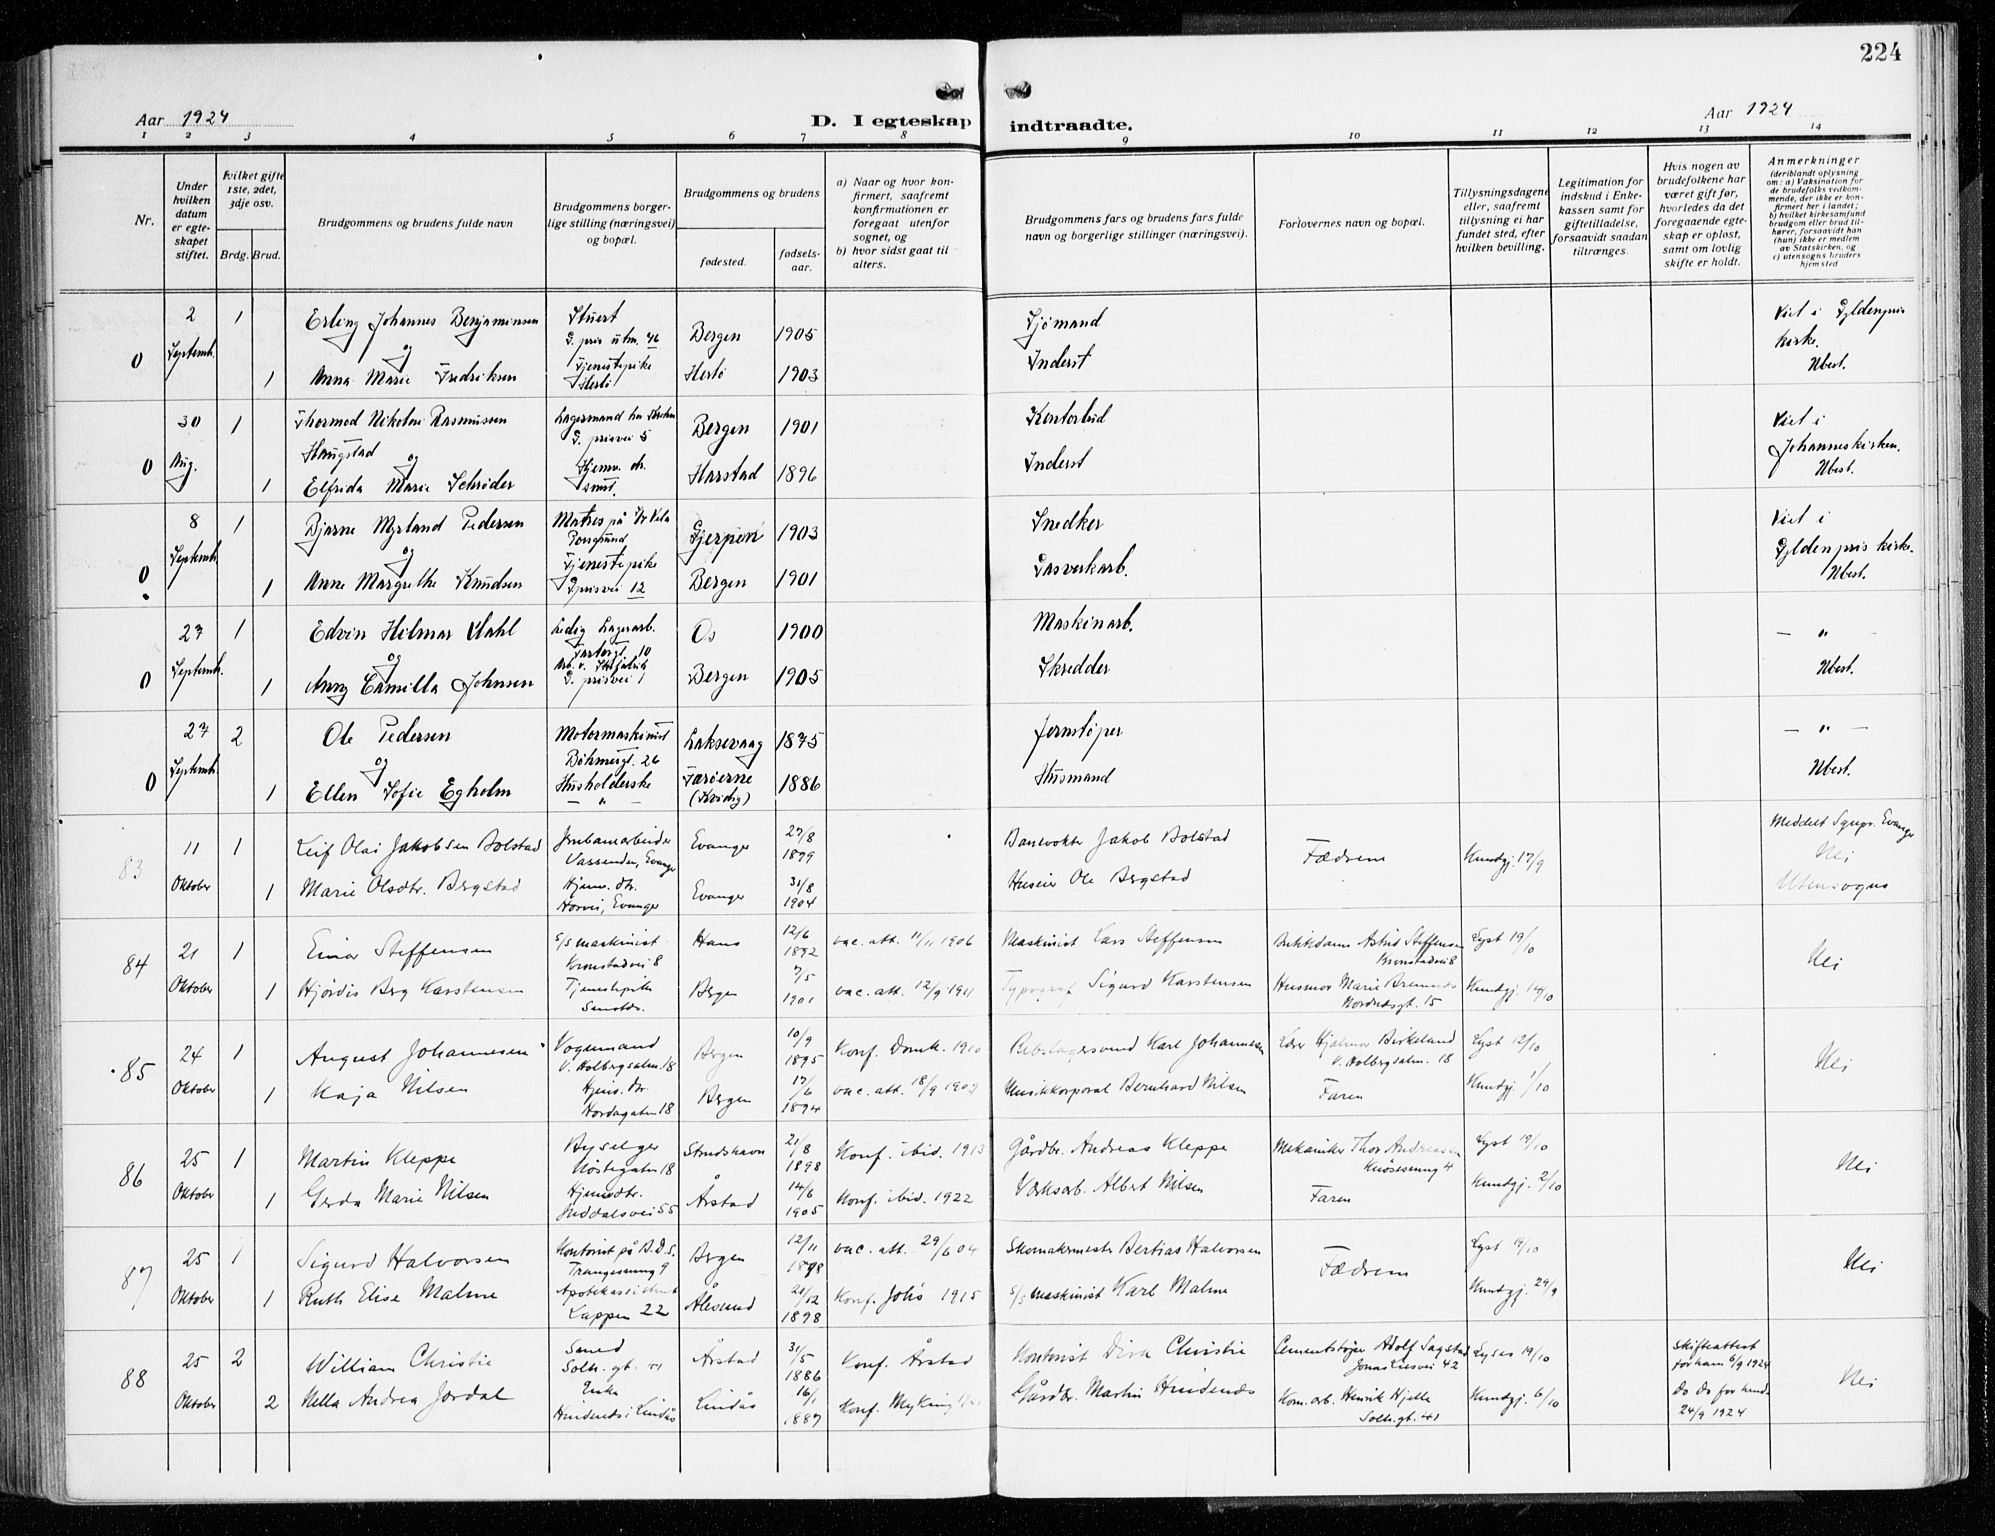 224
Aar 1924
D. I egteskap indtraadte.
Aar 1924
1 2 3 4 5 6 7 8 9 10 11 12 13 14
Nr.
Under hvilken datum er egteskapet stiftet.
Hvilket gifte 1ste, 2det, 3dje osv.
Brdg. Brud.
Brudgommens og brudens fulde navn
Brudgommens borgerlige stilling (næringsvei) og bopæl.
Brudgommens og brudens
fødested.
fødselsaar.
a) Naar og hvor konfirmert, saafremt konfirmationen er foregaat utenfor sognet, og
b) hvor sidst gaat til alters.
Brudgommens fars og brudens fars fulde navn og borgerlige stillinger (næringsvei).
Forlovernes navn og bopæl.
Tillysningsdagene eller, saafremt tillysning ei har fundet sted, efter hvilken bevilling.
Legitimation for indskud i Enkekassen samt for giftetilladelse, forsaavidt saadan tiltrænges.
Hvis nogen av brudefolkene har været gift før, hvorledes da det foregaaende egteskap er opløst, samt om lovlig skifte er holdt.
Anmerkninger (deriblandt oplysning om: a) Vaksination for de brudefolks vedkommende, der ikke er konfirmert her i landet; b) hvilket kirkesamfund brudgom eller brud tilhører, forsaavidt han (hun) ikke er medlem av Statskirken, og c) utensogns bruders hjemsted
0 2 Septemb. 1 Erling Johannes Benjaminsen Stuert G. pris utm. 46 Bergen 1905 Sjømand Viet i Gyldenpris kirke.
og
1 Anna Marie Fredriksen Tjenestepike Herlø Herlø 1903 Inderst Ubest.
0 30 Aug. 1 Thormod Nikolai Rasmussen Haugstad Lagermand G. prisvei 5 Bergen 1901 Kontorbud Viet i Johanneskirken.
og
1 Elfrida Marie Schrøder Hjemv. dtr. Harstad 1896 Inderst Ubest.
0 8 Septemb. 1 Bjarne Myrland Pedersen Matros på Porsgrund Gjerpen 1903 Snedker Viet i Gyldenpris kirke.
og
1 Anne Margrethe Knudsen Tjenestepike Gprisvei 12 Bergen 1901 Gasverkarb. Ubest.
0 27 Septemb. 1 Edvin Hilmar Dahl Ledig Lagerarb. Os 1900 Maskinarb. — " —
og
1 Anny Camilla Johnsen G. prisvei 1 Bergen 1905 Skredder Ubest.
0 27 Septemb. 2 Ole Pedersen Motormaskinist Bøhmergt. 26 Laksevaag 1875 Jernstøper — " —
og
1 Ellen Sofie Egholm Husholderske — " — Færøerne (Kvidig) 1886 Husmand Ubest.
83 11 Oktober 1 Leif Olai Jakobsen Bolstad Jernbanearbeider Vassenden, Evanger Evanger 27/8 1899 Banevokter Jakob Bolstad Fædrene Kundgj. 17/9 Meddelt Sgnpr. Evanger Nei
1 Marie Olsdtr. Bergstad Hjemv. dtr. Horvei, Evanger Evanger 31/8 1904 Huseier Ole Bergstad Utensogns
84 21 Oktober 1 Einar Steffensen s/s maskinist Kronstadvei 8 Haus 12/6 1892 vac. att. 11/11 1906 Maskinist Lars Steffensen Butikdame Astrid Steffensen Kronstadvei 8 Lyst 19/10 Nei
1 Hjørdis Berg Karstensen Tjenestepike Bergen 7/5 1901 vac. att. 12/9 1911 Typograf Sigurd Karstensen Husmor Marie Nordnesgt. 15 Kundgj. 14/10
85 24 Oktober 1 August Johannesen Vognmand V. Holbergsalm. 18 Bergen 10/9 1895 Konf. Domk. 1910 Rebslagersvend Karl Johannesen Lærer Hjalmar Birkeland V. Holbergsalm. 18 Lyst 12/10 Nei
1 Kaja Nilsen Hjem. dtr. Hordagaten 18 Bergen 17/6 1894 vac. att. 18/9 1907 Musikkorporal Bernhard Nilsen Faren Kundgj. 1/10
86 25 Oktober 1 Martin Kleppe Byselger Nøstegaten 18 Strudshavn 21/8 1898 Konf. ibid. 1913 Gårdbr. Andreas Kleppe Mekaniker Thor Andreassen Knøsesmug 4 Lyst 19/10 Nei
1 Gerda Marie Nilsen Hjemv. dtr. Inddalsvei 55 Årstad 14/6 1905 Konf. ibid. 1922 Værksarb. Albert Nilsen Faren Kundgj. 2/10
87 25 Oktober 1 Sigurd Halvorsen Kontorist på B.D.S. Trangesmug 9 Bergen 12/11 1898 vac. att. 29/6 04 Skomakermester Bertias Halvorsen Fædrene Lyst 19/10 Nei
1 Ruth Elise Malme Apotekassistent Kappen 22 Ålesund 21/12 1898 Konf. Johs 1915 s/s maskinist Karl Malme Kundgj. 29/9
88 25 Oktober 2 William Christie Smed Solh. gt. 41 Årstad 31/5 1886 Konf. Årstad Kontorist Christie Cementstøper Adolf Sagstad Jonas Liesvei 42 Lyses 19/10 Skifteattest for ham 6/9 1924 Nei
2 Nella Andrea Jordal Enke Hindenes i Lindås Lindås 16/1 1887 Konf. Myking Gårdbr. Martin Hindenes Kom. arb. Henrik Hjelle Solh. gt. 41 Kundgj. 6/10 Do Do for hende 24/9 1924